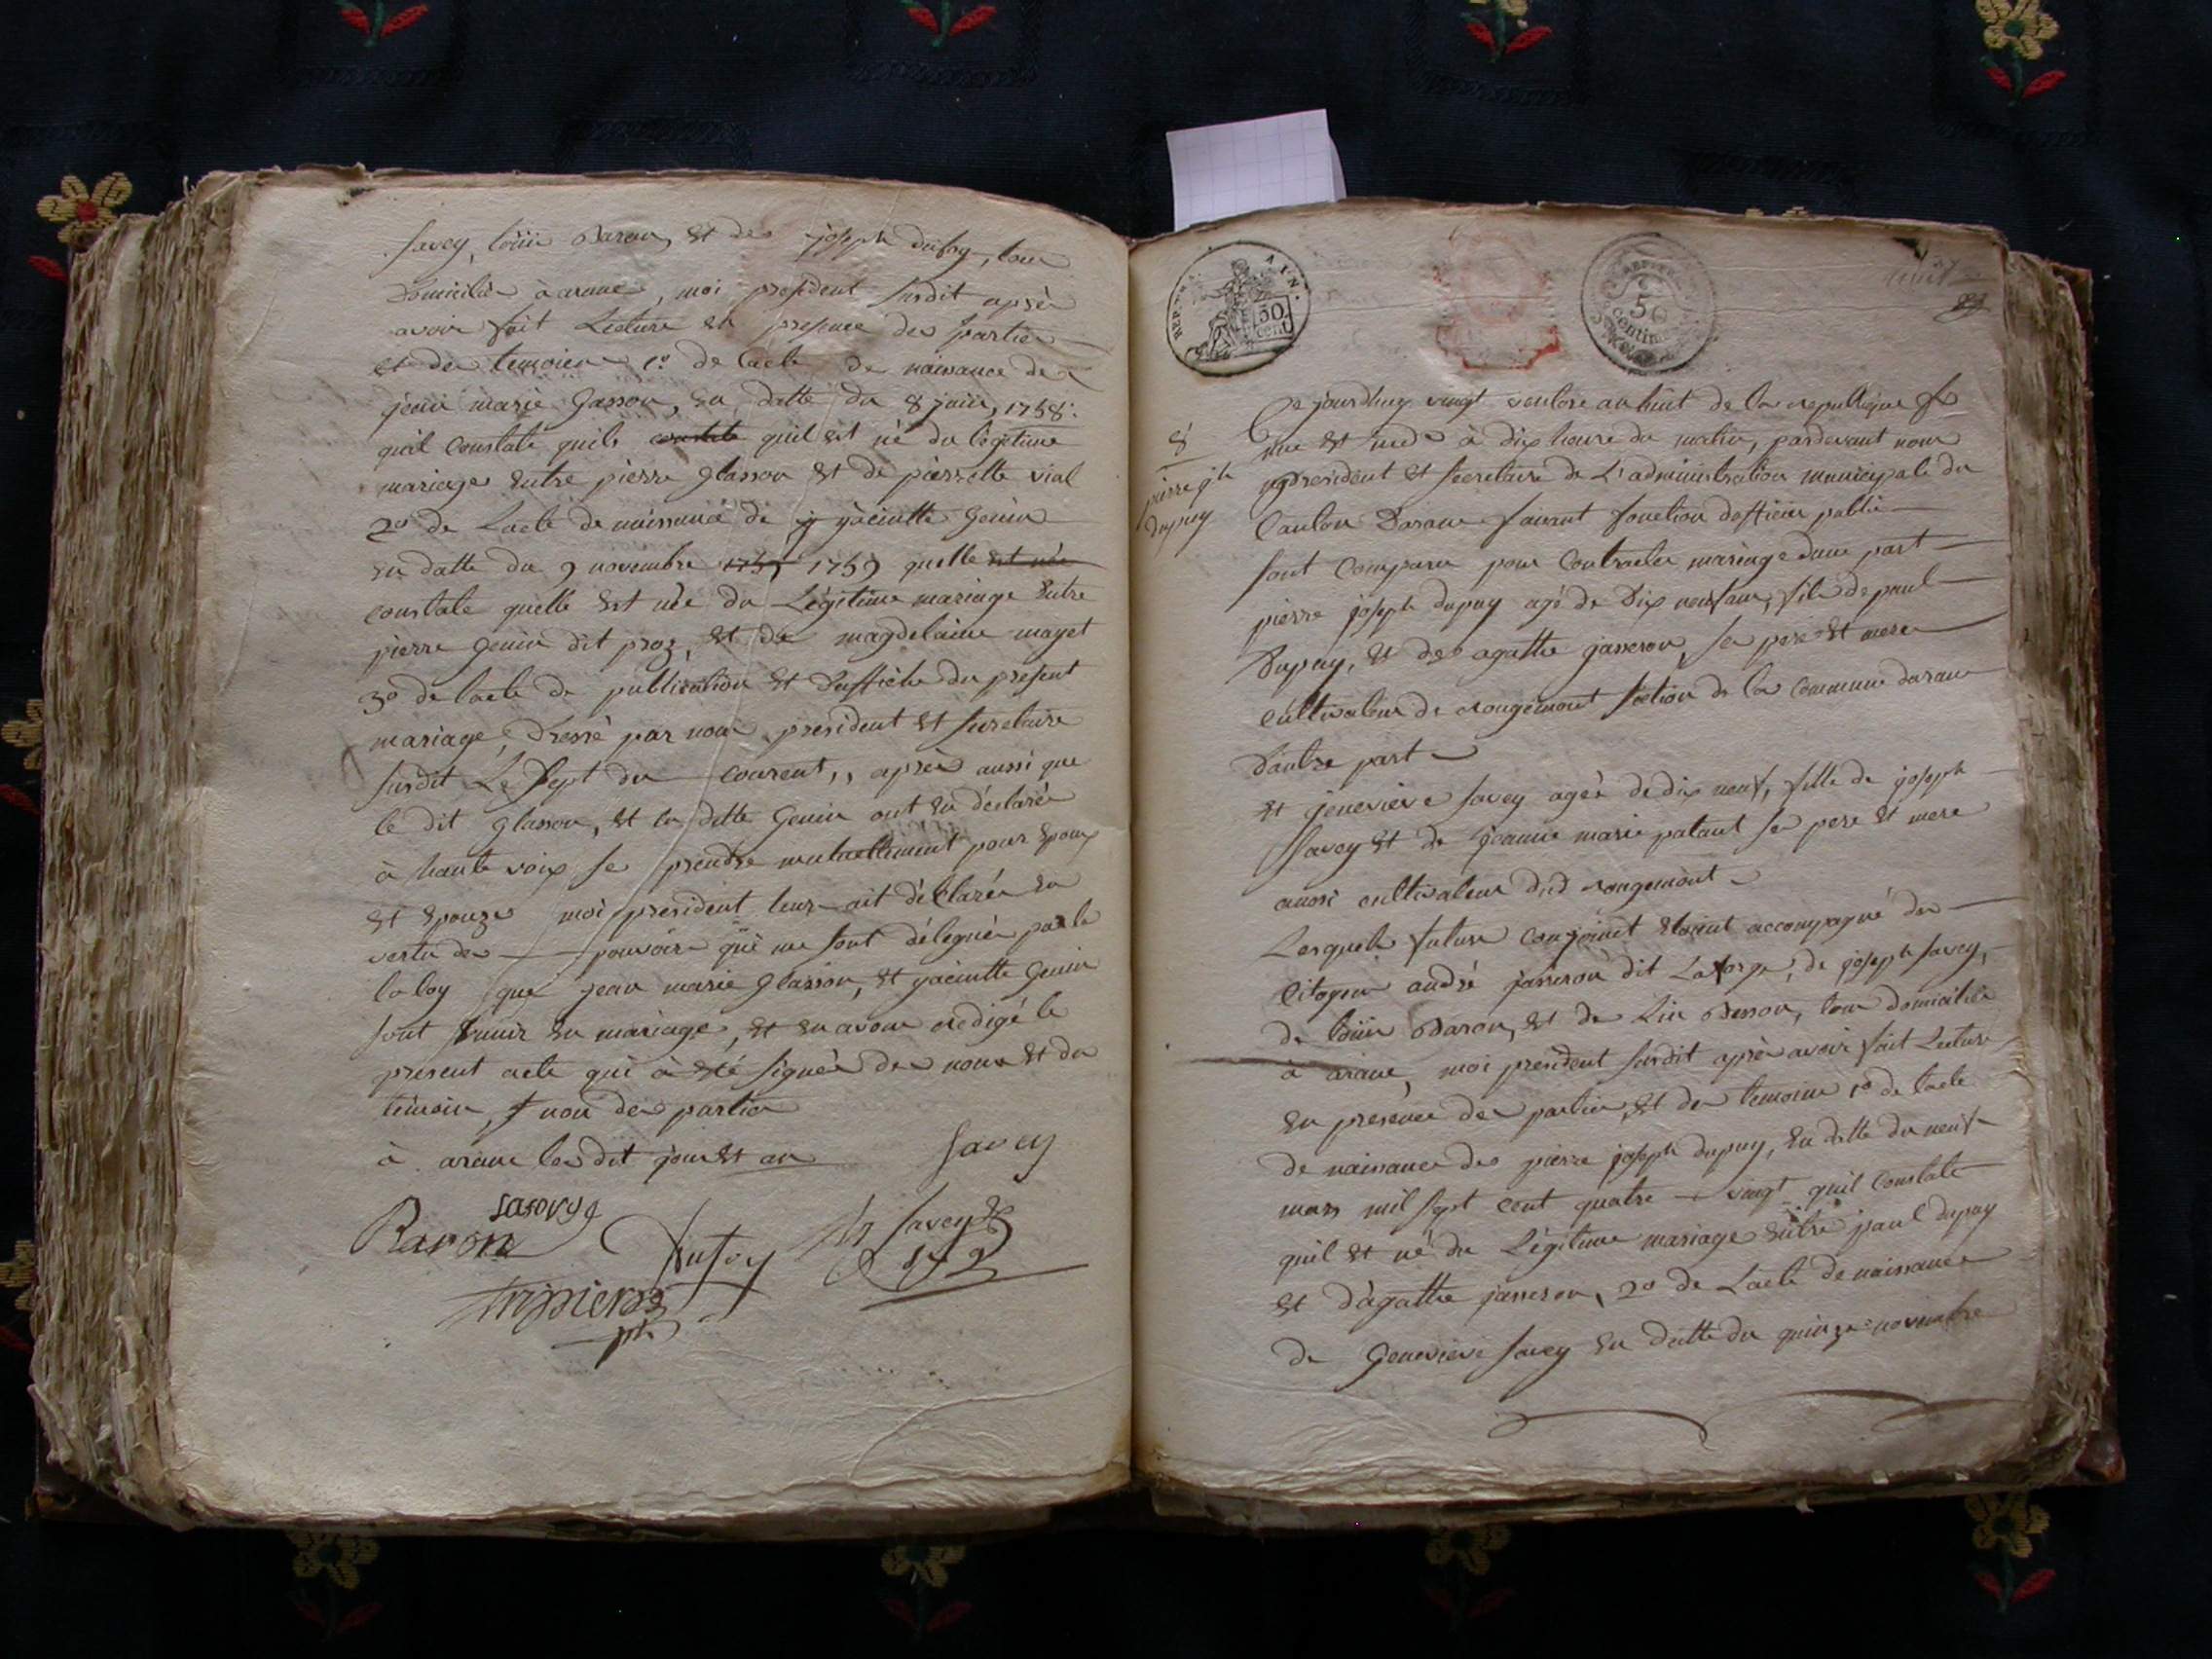 Savey, loüis Baron, et de joseph dufoy, tous
domiciliés à arane, moi president susdit après
avoir fait Lecture en presence des parties
et des temoins 1º. de lacte de naissance de
jean marie Glasson, en datte du 8 juin, 1758.
qu'il constate quils constate quil est né du légitime
mariage entre pierre glasson et de pierrette vial
2º de Lacte de naissance de jacintte Genin
en datte du 9 novembre 1757 1759 quelle est née
constate quelle est née du Légitime mariage entre
pierre genin dit proz, et de magdelaine mayet
3º de lacte de publication et d'affiche du present
mariage, dressé par nous president et secretaire
susdit Le sept du courent,, après aussi que
le dit glasson, et la ditte Genin ont eu déclarés
à haute voix se prendre mutuellement pour epoux
et epouze moi president leur ait déclarés en
vertu des pouvoirs qüi me sont délégués par le
la loy que jean marie glasson, et jacintte Genin
sont unis en mariage, et en avons redigé le
present acte qui à eté signés de nous et du
témoin, & non des parties
à arane les dit jour et an
Savey
Baron
Dufoy
Savey
Tripier
pdt
REP. FRA. AIN.
50 cent
50 centim
huit
8
pierre jh
dupuy
Ce jourdhuy vingt ventose an huit de la republique fr
une et ind à dix heure du matin, pardevant nous
president et secretaire de L'administration municipale du
Canton Darane faisant fonction d'officier public
sont comparu pour contracter mariage dune part
pierre joseph dupuy agé de dix neuf ans, fils de paul
Dupuy, et de agathe jasseron, ses pere et mere
cultivateur de rougemont section de la commune darane
d'autre part
et jenevieve savey agée de dix neuf, fille de joseph
Savey et de Jeanne marie patant ses pere et mere
aussi cultivateur dud rougemont
Lesquels futurs conjoint etoient accompagné des
Citoyens andré jasseron dit Laforge, de joseph savey,
de loüis Baron, et de Lin Besson, tous domiciliés
à arane, moi president susdit après avoir fait Lecture
en presence des parties, et des temoins 1º de lacte
de naissance de pierre joseph dupuy, en datte du neuf
mars mil sept cent quatre vingt quil constate
quil et né du Légitime mariage entre paul dupuy
et d'agathe jasseron, 2º de Lacte de naissance
de Genevieve savey en datte du quinze novembre